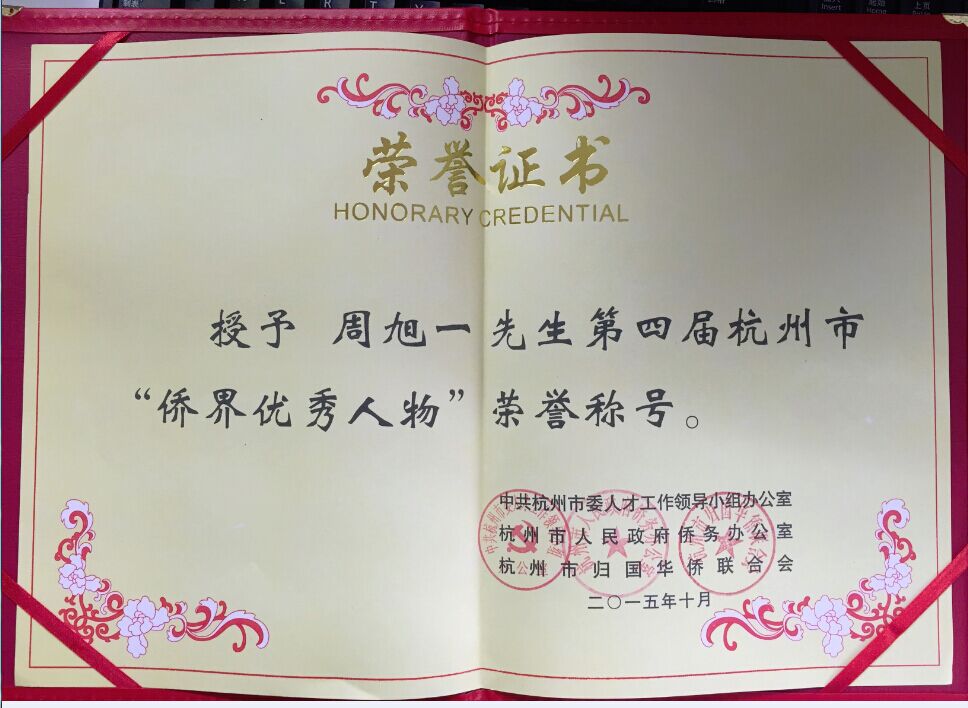 荣誉证书
HONORARY CREDENTIAL
授予 周旭一 先生第四届杭州市
“侨界优秀人物”荣誉称号。
中共杭州市委人才工作领导小组办公室
杭州市人民政府侨务办公室
杭州市归国华侨联合会
二〇一五年十月